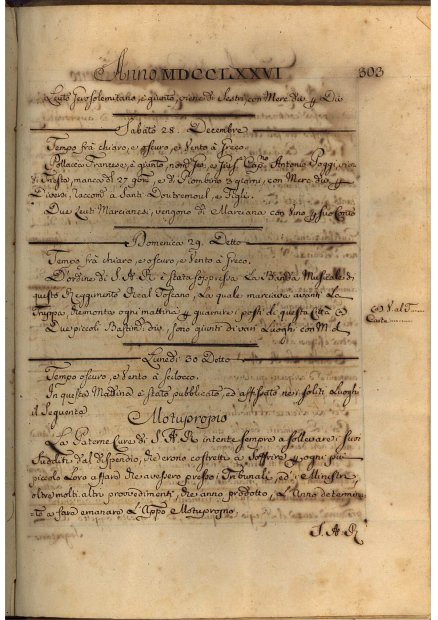 Anno MDCCLXXVI 303
Leuto Gerosolemitano, è giunto, viene di Sestri, con Merc. div. p. Div.
Sabato 28. Decembre
Tempo frà chiaro, e oscuro, e Vento à Greco.
Pollacca Francese, è giunto, nom. Cap. Antonio Poggi, viene
di Tnesto, manca da 27 gni, e di Piombino 3 giorni, con Merc. div. p.
Diversi, raccom. a Santi Doutremoul, e Figli.
Due Leuti Marcianesi, vengono di Marciana con Vino p. suo Conto
Domenica 29. Detto
Tempo frà chiaro, e oscuro, e Vento à Greco.
D'ordine di S. A. R. è stata soppressa La Banda Musicale di
questo Reggimento Real Toscano, La quale marciava avanti La
Truppa, che montava ogni mattina p. guarnire i posti di questa Città
Due piccoli Bastim. div. sono giunti di varj Luoghi con M. d.
Lunedì 30 Detto
Tempo oscuro, e Vento à scilocco.
In questa Mattina è stato pubblicato, ed affissato ne i soliti Luoghi
il Seguente
Motuproprio
La Paterne Cure di S. A. R. intente sempre a sollevare i suoi
Sudditi dal dispendio, che erono costretti a Soffrire p. ogni più
piccolo Loro affare che avessero presso i Tribunali, ed i Ministri,
oltre molti altri provvedimenti, che anno prodotto, L'Anno determina=
=to a fare emanare L'App.o Motuproprio
S. A. R.